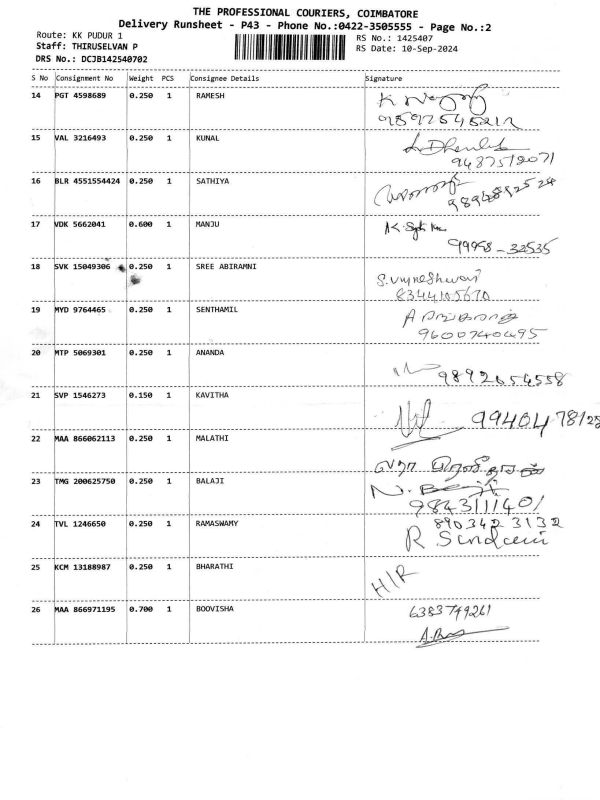 THE PROFESSIONAL COURIERS, COIMBATORE
Delivery Runsheet - P43 - Phone No.:0422-3505555 - Page No.:2
Route: KK PUDUR 1
RS No.: 1425407
Staff: THIRUSELVAN P
RS Date: 10-Sep-2024
DRS No.: DCJB142540702
S No Consignment No Weight PCS Consignee Details Signature
14 PGT 4598689 0.250 1 RAMESH K
15 VAL 3216493 0.250 1 KUNAL
9487512071
16 BLR 4551554424 0.250 1 SATHIYA
17 VDK 5662041 0.600 1 MANJU
99958-32535
18 SVK 15049306 0.250 1 SREE ABIRAMNI
8344105670
19 MYD 9764465 0.250 1 SENTHAMIL A
9600740495
20 MTP 5069301 0.250 1 ANANDA
9892654558
21 SVP 1546273 0.150 1 KAVITHA
9940478125
22 MAA 866062113 0.250 1 MALATHI
23 TMG 200625750 0.250 1 BALAJI
9843111401
24 TVL 1246650 0.250 1 RAMASWAMY 890342 3132
R
25 KCM 13188987 0.250 1 BHARATHI
H/R
26 MAA 866971195 0.700 1 BOOVISHA 6383749261